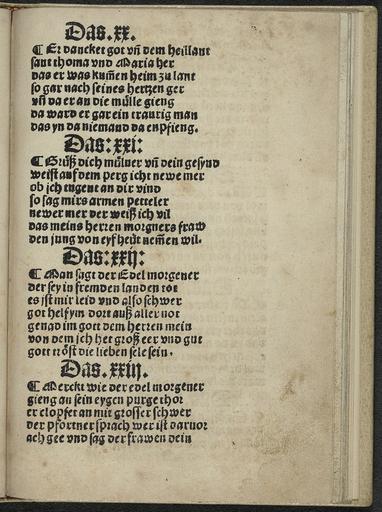 Das.xx.
¶ Er dancket got vñ dem heillant
sant thoma vnd Maria her
das er was kum̄en heim zu lant
so gar nach seines hertzen ger
vñ da er an die mülle gieng
da ward er gar ein traurig man
das yn da niemand da enpfieng.
Das:xxi:
¶ Grüß dich mülner vñ dein gesynd
weist auf dem perg icht newe mer
ob ich tugent an dir vind
so sag mirs armen petteler
newer mer der weiß ich vil
das meins herren morgners fraw
den jung von eyf heüt nem̄en wil.
Das:xxij:
¶ Man sagt der Edel morgener
der sey in fremden landen tot
es ist mir leid vnd also schwer
got helf ym dort auß aller not
genad im gott dem herren mein
von dem jch het groß eer vnd gut
gott tröst die lieben sele sein.
Das.xxiij.
¶ Merckt wie der edel morgener
gieng an sein eygen purge thor
er clopfet an mit grosser schwer
der pfortner sprach wer ist daruor
ach gee vnd sag der frawen dein